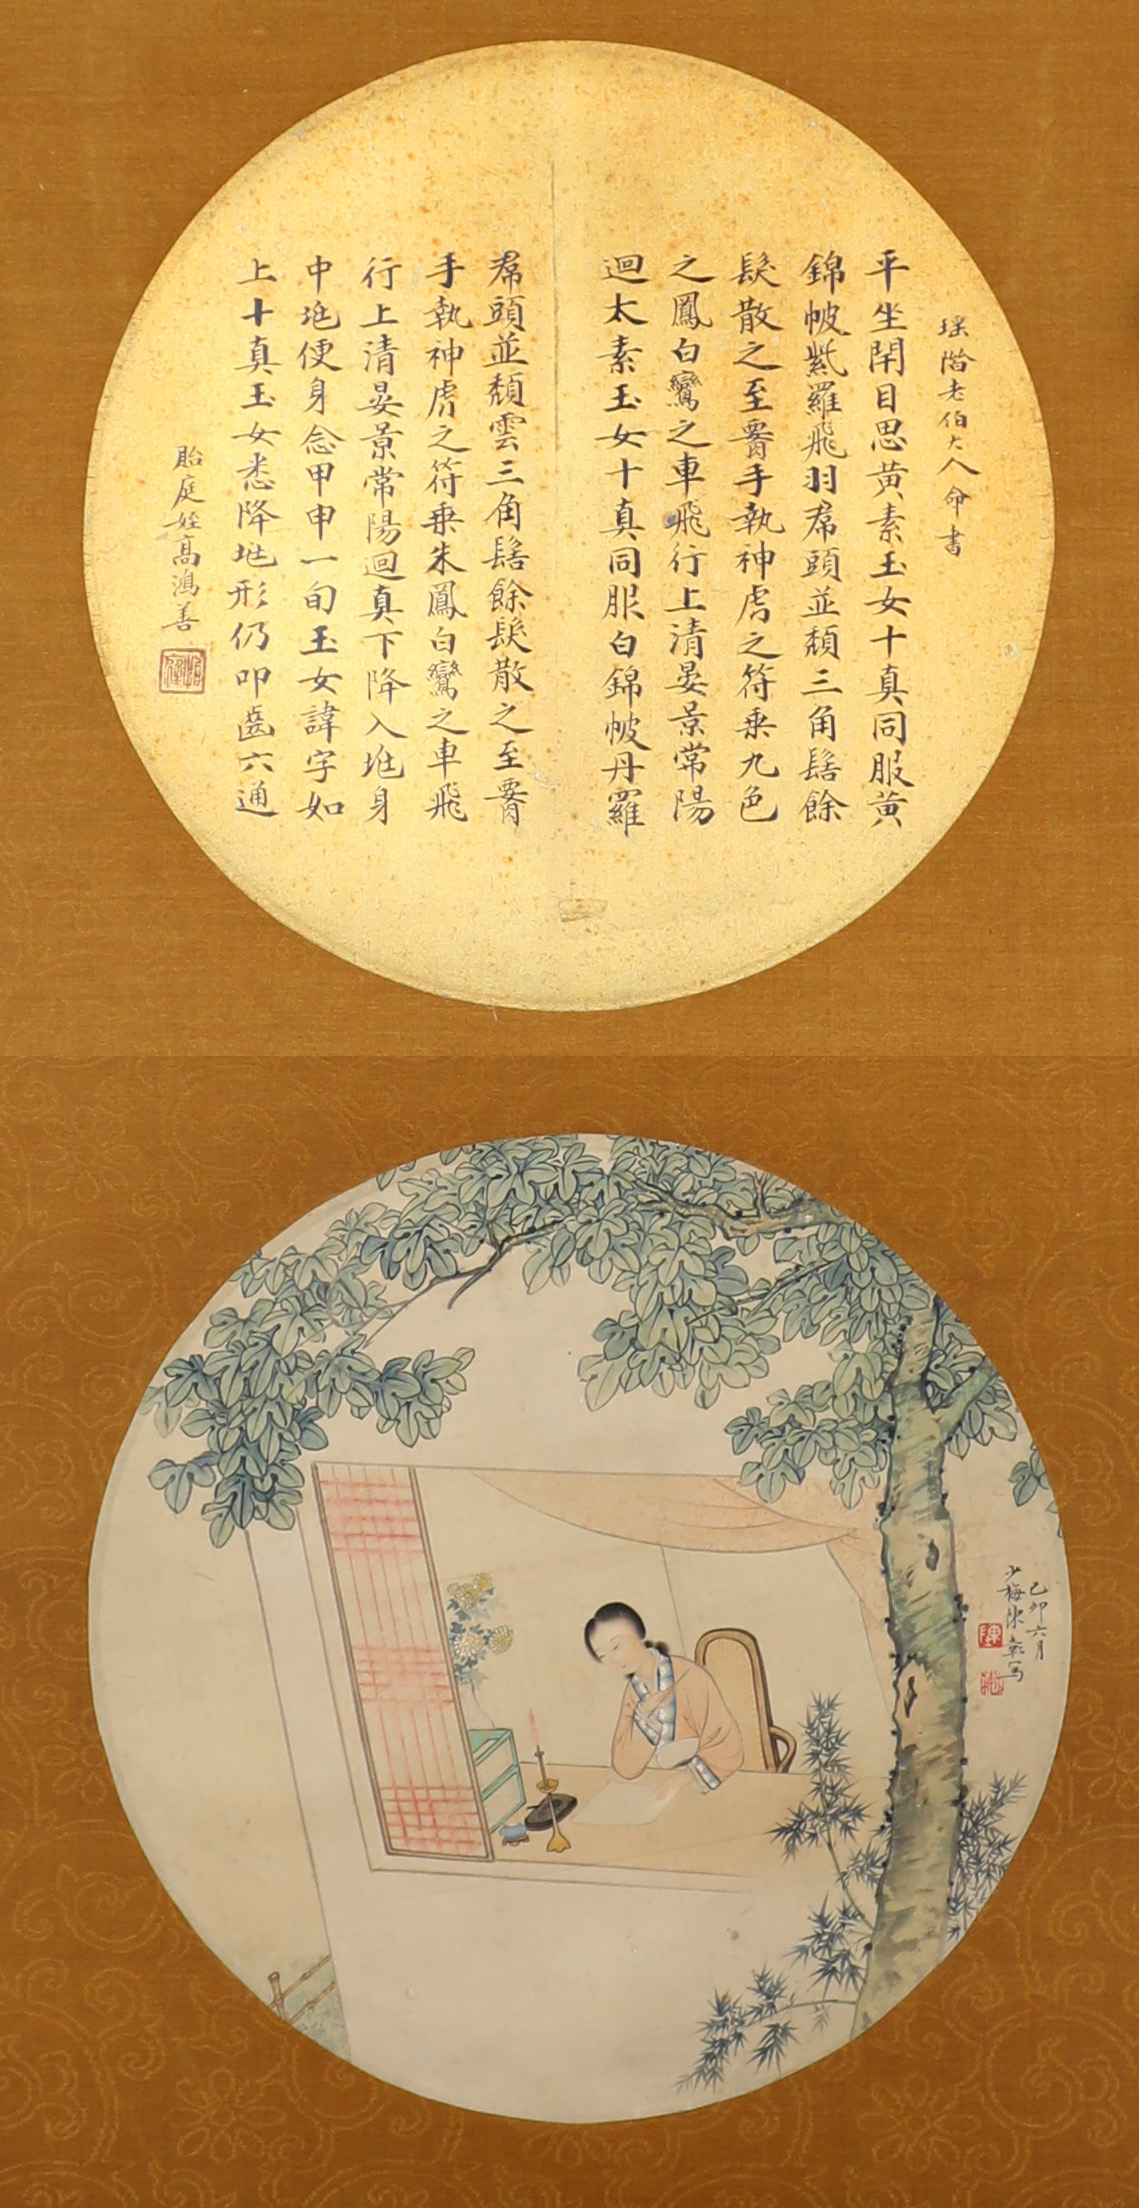 瑶階老伯大人命書
平坐閉目思黃素玉女十真同服黃
錦帔紫羅飛羽帬頭並頹三角髻餘
髮散之至要手執神虎之符乗九色
之鳳白鸞之車飛行上清晏景常陽
迴太素玉女十真同服白錦帔丹羅
帬頭並頹雲三角髻餘髮散之至要
手執神虎之符乗朱鳳白鸞之車飛
行上清晏景常陽迴真下降入兆身
中兆便身念甲申一旬玉女諱字如
上十真玉女悉降兆形仍叩齒六通
貽庭姪高鴻善
己卯六月
少梅陳彰写
陳